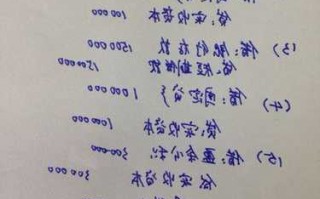 贷：实收资本 100 000
(3) 借：银行存款 1500 000
贷：短期借款 1500 000
(4) 借：固定资产 1 000 000
贷：实收资本 1000 000
(5) 借：盈余公积 300 000
贷：实收资本 300 000